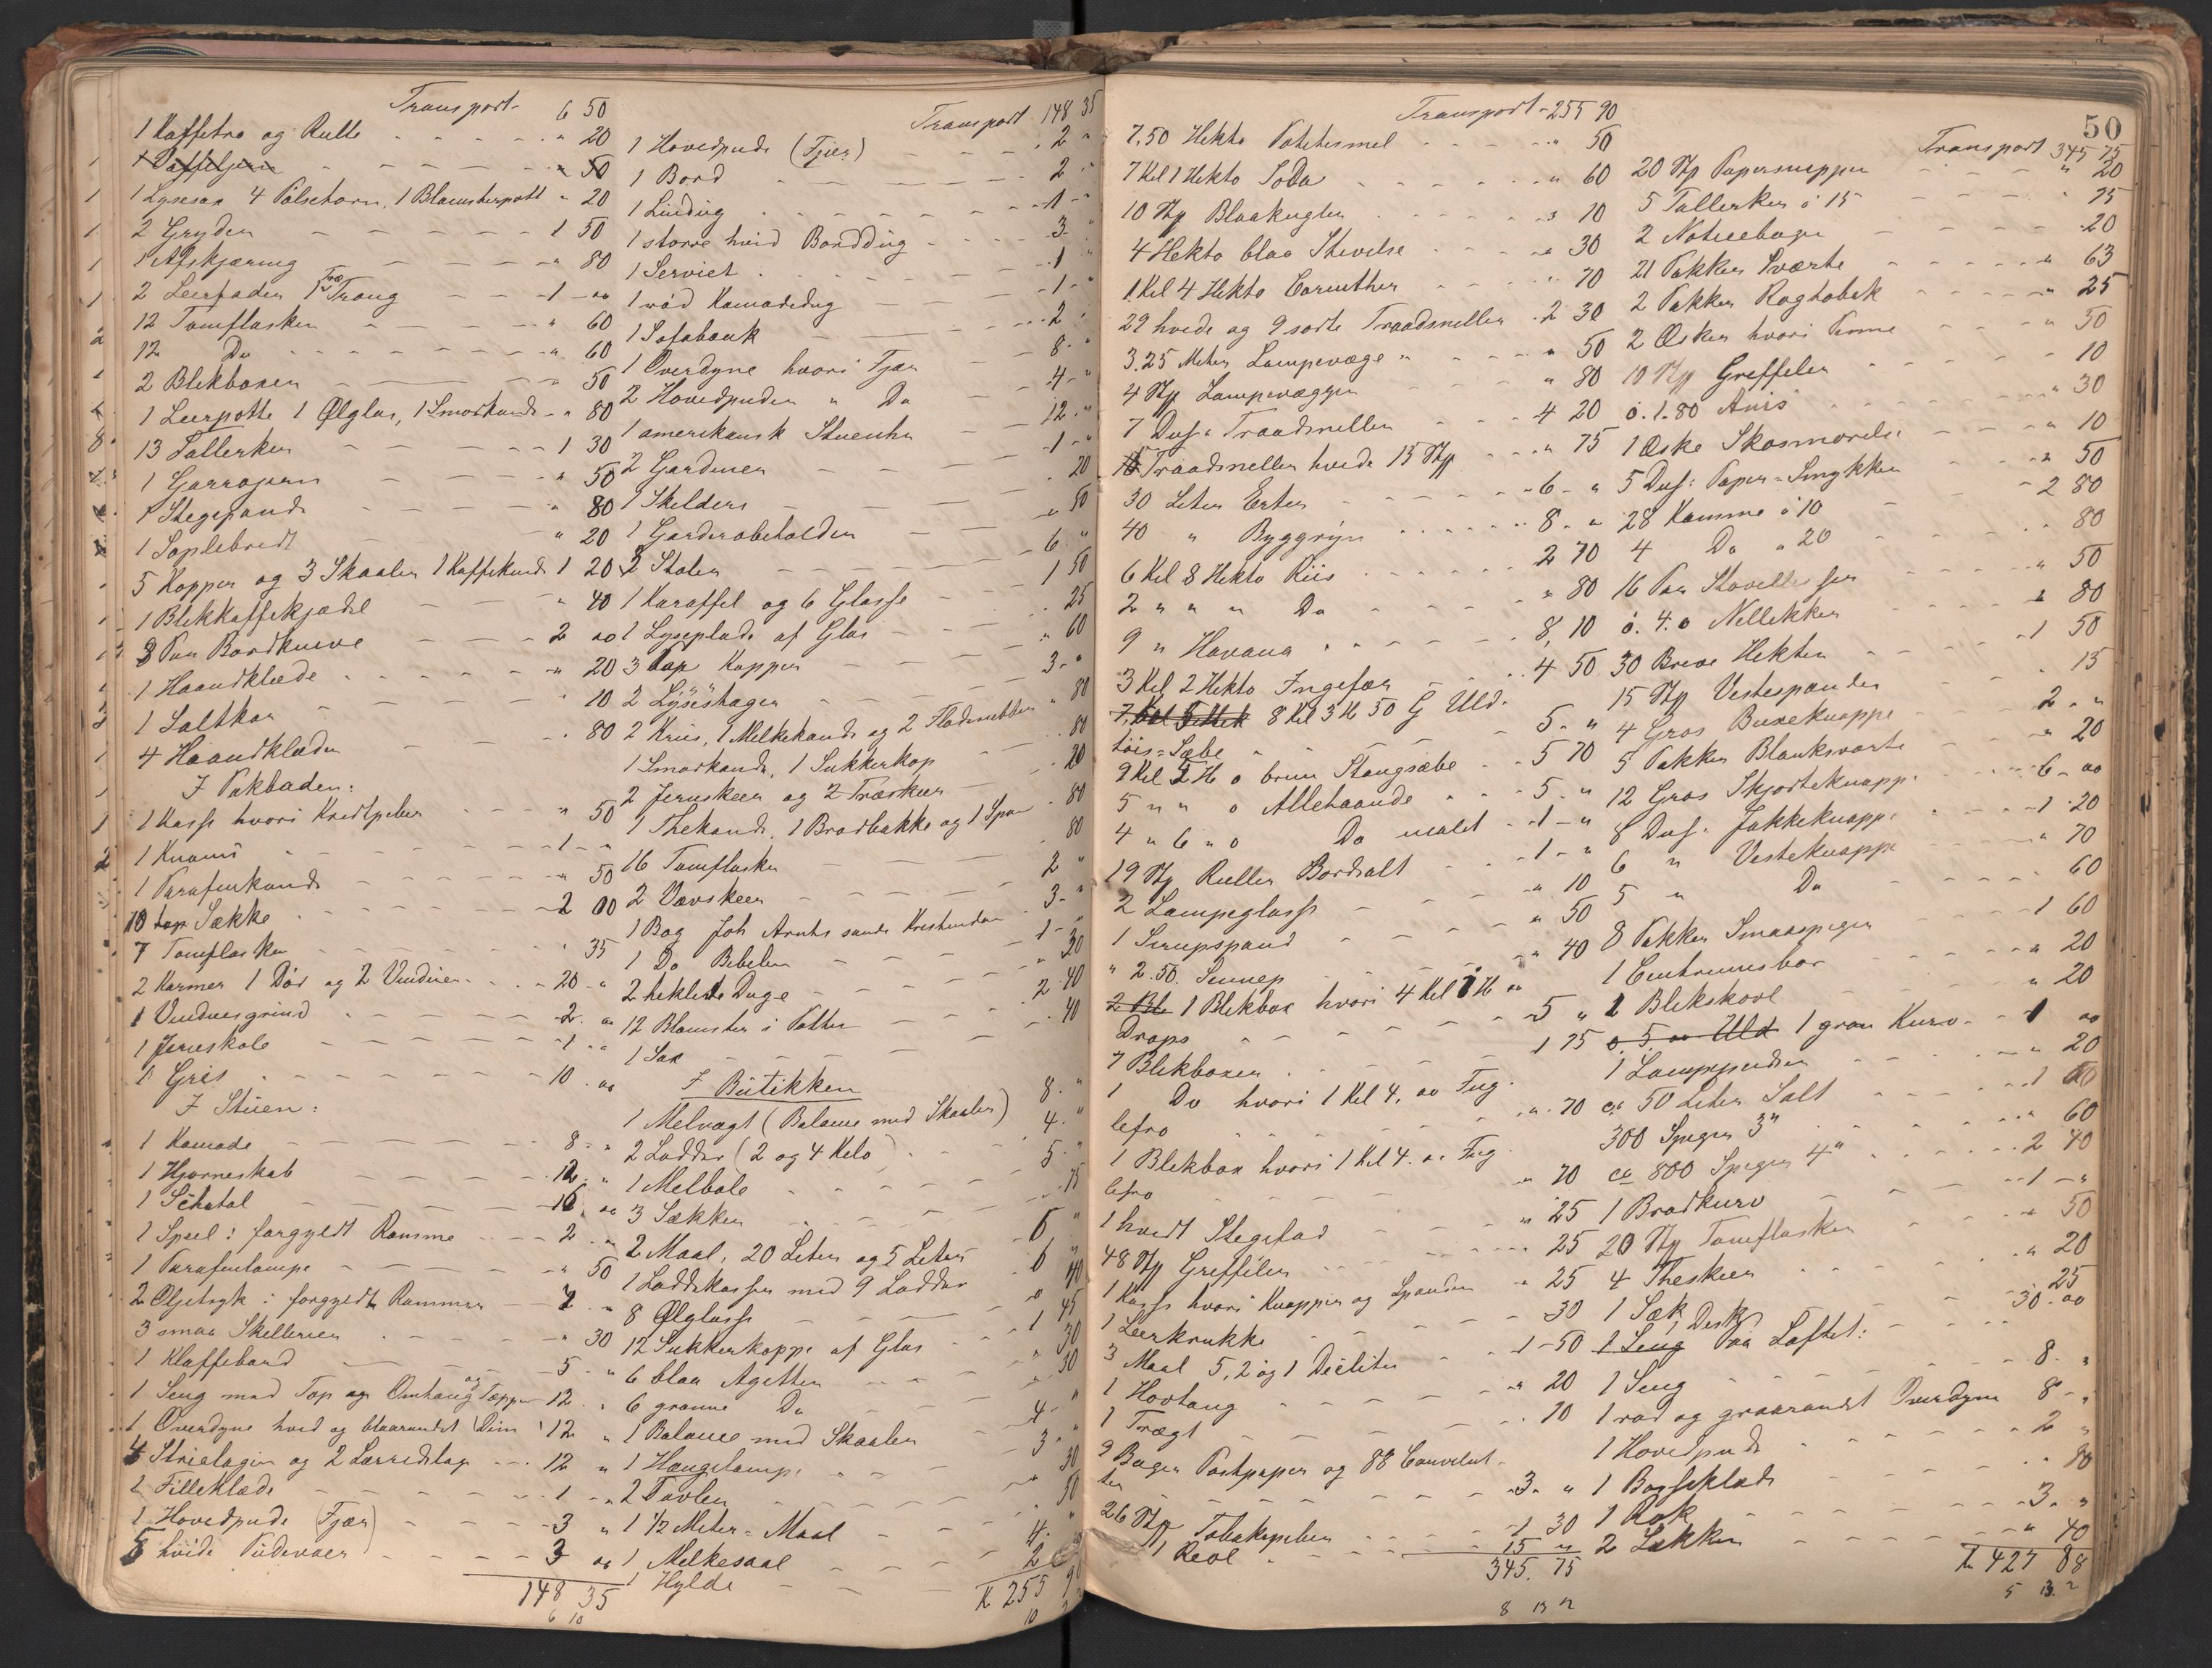 Transport 6 50
1 Kaffetra og Rulle " 20
1 Kaffekjæn " 50
1 Lysesax 4 Pølsehorn, 1 Blomsterpott " 20
2 Gryder 1 50
1 Afskjæring " 80
2 Leerfader 1 Træ Traug 1 "
12 Tomflasker " 60
12 Do " 60
2 Blekboxer " 50
1 Leerpotte 1 Ølglas, 1 Smorkande " 80
13 Tallerker 1 30
1 " 50
1 Stegepande " 80
1 " 20
5 Kopper og 3 Skaaler 1 Kaffekande 1 20
1 Blekkaffekjædel " 40
3 Par Bordkneve 2 "
1 Haandklæde " 20
1 Saltkar " 10
4 Haandklæder " 80
I Pakboden:
1 Kasse hvori Kredtpeber " 50
1 Knams 1 "
1 Parafinkande " 50
10 Sække 2 00
7 Tomflasker " 35
2 Karmer 1 Dør og 2 Vinduer 20 "
1 Vinduesgrind 2 "
1 Jerneskole 1 "
1 Gris 10 "
I Stuen:
1 Komode 8 "
1 Hjorneskab 12 "
1 Schatol 16 "
1 Speil i forgyldt Ramme 2 "
1 Parafinlampe " 50
2 Oljetryk i forgyldte Rammer 2 "
3 smaa Skillerier " 30
1 Klaffebord 5 "
1 Seng med Top og Omhang og Tæpper 12 "
1 Overdyne hvid og blaarandet 12 "
4 Strielagen og 2 Lærredslag 12 "
1 Filleklæde 1 "
1 Hovedpude (Fjær) 3 "
5 hvide Pudevaer 3 "
148 35
6 10
Transport 148 35
1 Hovedpude (Fjær) 2 "
1 Bord 2 "
1 Lindug 1 "
1 storre hvid Borddug 3 "
1 Serviet 1 "
1 rød Komodedug 1 "
1 Sofabænk 2 "
1 Overdyne hvori Fjær 8 "
2 Hovedpuder " Do 4 "
1 amerikansk Stueuhr 12 "
2 Gardiner 1 "
1 Skelderi " 20
1 Garderobeholder " 50
3 Stoler 6 "
1 Karaffel og 6 Glasse 1 50
1 Lyseplade af Glas " 25
3 Kopper " 60
2 Lysestager 3 "
2 Krus, 1 Melkekande og 2 " 80
1 Smorkande, 1 Sukkerkop " 80
2 Jernskeer og 2 Træskeer " 20
1 Thekande, 1 Brodbakke og 1 Span " 80
16 Tomflasker " 80
2 Vævskeer 2 "
1 Bog Joh Arnts sande Kristendom 3 "
1 Do Bibelen 1 "
2 heklede Duge " 20
12 Blomster i Potter 2 40
1 Sax " 40
I Butikken
1 Melvægt (Balance med Skaaler) 8 "
2 Lodder (2 og 4 Kelo) 4 "
1 Melbale 5 "
3 Sækker " 75
2 Maal, 20 Leter og 5 Leter 5 "
1 Loddekasse med 9 Lodder 6 "
8 Ølglasse " 40
12 Sukkerkoppe af Glas 1 45
6 blaa Agetter " 30
6 gronne Do " 30
1 Balance med Skaaler 4 "
1 Hængelampe 3 "
2 Tavler " 30
1 1/2 Meter = Maal " 50
1 Melkesaal 4 "
1 Hylde 2
K 255 90
10
Transport 255 90
7,50 Hekto Potetesmel " 50
7 Kel 1 Hekto Soda " 60
10 Stp Blaakugler " 10
4 Hekto blaa Stevelse " 30
1 Kel 4 Hekto Corinther " 70
29 hvide og 9 sorte Traadsneller 2 30
3.25 Meter Lampevæge " " 50
4 Stp Lampevægger " 80
7 Dus: Traadsneller 4 20
Traadsneller hvide 15 Stp " 75
30 Leter Erter 6 "
40 " Byggryn 8 "
6 Kel 8 Hekto Riis 2 70
2 " " " Do " 80
9 " Havana 8, 10
3 Kel 2 Hekto Ingefær 4 50
8 Kel 3 H 50 G Uld-
tøis = Sæbe 5 "
9 Kel 5 H o brun Stangsæbe 5 70
5 " " o Allehaande 5 "
4 " 6 " o Do malet 1 "
19 Stp Ruller Bordsalt 1 "
2 Lampeglasse " 10
1 Serupspand " 50
" 2.50. Sennep " 40
2 Bl. 1 Blekbox hvori 4 Kel 1 H "
Drops 5 "
7 Blekboxer 1 75
1 Do hvori 1 Kel 4. " Tug-
lefro " 70
1 Blekbox hvori 1 Kel 4. " Tug-
lefro " 70
1 hvidt Stegefad " 25
48 Stp Greffeler 25
1 Kasse hvori Knapper og Spænder " 25
1 Leerkrukke 30
3 Maal 5, 2 og 1 Deciliter 1 50
1 Hovtang " 20
1 Trægt 10
9 Bøger Postpaper og 88 Convelut-
ter 3 "
26 Stp Tobakspeber 1 30
1 Reol 15 "
345. 75
8 13 2
50
Transport 345 75
20 Stp Papersnipper " 20
5 Tallerker á 15 75
2 Noticebøger 20
21 Pakker Sværte " 63
2 Pakker Rogtobak " 25
2 Æsker hvori Penne " 50
10 Stp Greffeler 10
ó. 1.80 Anis " 30
1 Æske Skosmørelse " 10
5 Dus: Paper = Smykker " 50
28 Kamme á 10 2 80
4 Do " 20 " 80
16 Par " 50
ó. 4. o Nellekker " 80
30 Breve Hekter 1 50
15 Stp Vestespænder " 15
4 Gros Buxeknappe 2 "
5 Pakker Blanksværte " 20
12 Gros Skjorteknapp 6 "
8 Dus: Jakkeknappe 1 20
6 " Vesteknappe " 70
5 " Do 60
8 Pakker Smaaspiger 1 60
1 Centrumsbor " 20
1 Blekskovl " 20
1 gron Kurv 1 "
1 Lampepudser " 20
ca 50 Leter Salt 1 60
300 Spiger 3" " 60
ca 800 Spiger 4" 2 40
1 Brodkurv 1 "
20 Stp Tomflasker " 50
4 Theskeer " 20
1 Sæk 25
1 Desk 30 "
Paa Loftet:
1 Seng 8 "
1 rød og graarandet Overdyne 8 "
1 Hovedpude 2 "
1 Børseplade " 80
1 Rok 3 "
2 Sækker " 40
K 427 88
5 13 2